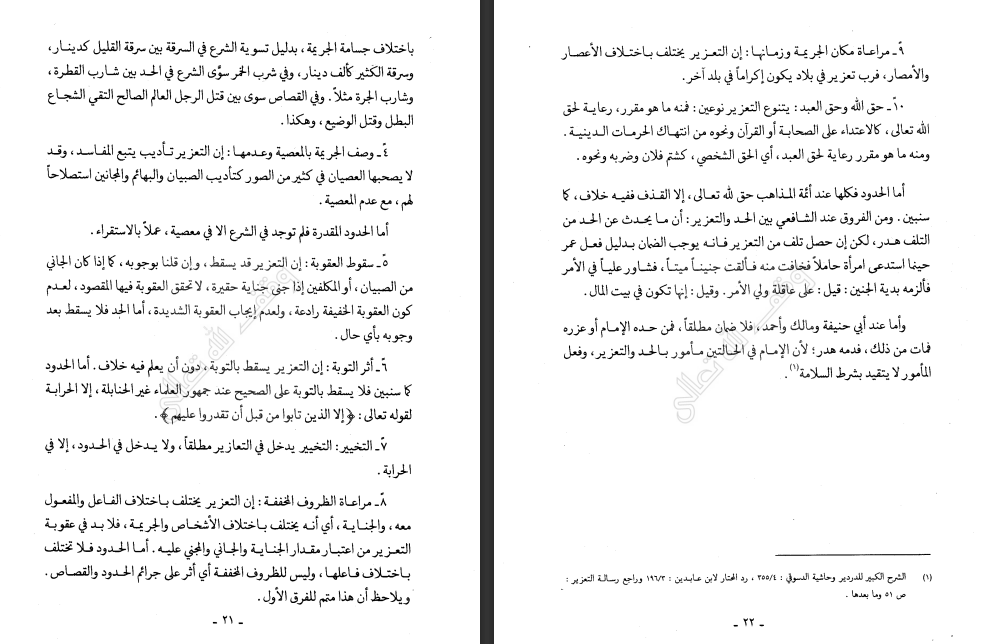 باختلاف جسامة الجريمة ، بدليل تسوية الشرع في السرقة بين سرقة القليل كدينار ،
وسرقة الكثير كألف دينار ، وفي شرب الخمر سوَّى الشرع في الحد بين شارب القطرة ،
وشارب الجرة مثلاً . وفي القصاص سوى بين قتل الرجل العالم الصالح التقي الشجاع
البطل وقتل الوضيع ، وهكذا .
٤ً ـ وصف الجريمة بالمعصية وعدمها : إن التعزير تأديب يتبع المفاسد ، وقد
لا يصحبها العصيان في كثير من الصور كتأديب الصبيان والبهائم والمجانين استصلاحاً
لهم ، مع عدم المعصية .
أما الحدود المقدرة فلم توجد في الشرع الا في معصية ، عملاً بالاستقراء .
٥ً ـ سقوط العقوبة : إن التعزير قد يسقط ، وإن قلنا بوجوبه ، كما إذا كان الجاني
من الصبيان ، أو المكلفين إذا جنى جناية حقيرة ، لاتحقق العقوبة فيها المقصود ، لعدم
كون العقوبة الخفيفة رادعة ، ولعدم إيجاب العقوبة الشديدة ، أما الحد فلا يسقط بعد
وجوبه بأي حال .
٦ً ـ أثر التوبة : إن التعزير يسقط بالتوبة ، دون أن يعلم فيه خلاف . أما الحدود
كما سنبين فلا يسقط بالتوبة على الصحيح عند جمهور العلماء غير الحنابلة ، إلا الحرابة
لقوله تعالى : ﴿ إلا الذين تابوا من قبل أن تقدروا عليهم ﴾ .
٧ً ـ التخيير : التخيير يدخل في التعازير مطلقاً ، ولا يدخل في الحدود ، إلا في
الحرابة .
٨ً ـ مراعاة الظروف المخففة : إن التعزير يختلف باختلاف الفاعل والمفعول
معه ، والجناية ، أي أنه يختلف باختلاف الأشخاص والجريمة ، فلا بد في عقوبة
التعزير من اعتبار مقدار الجناية والجاني والمجني عليه . أما الحدود فلا تختلف
باختلاف فاعلها ، وليس للظروف المخففة أي أثر على جرائم الحدود والقصاص .
ويلاحظ أن هذا متمم للفرق الأول .
ـ ٢١ ـ
٩ً ـ مراعاة مكان الجريمة وزمانها : إن التعزير يختلف باختلاف الأعصار
والأمصار ، فرب تعزير في بلاد يكون إكراماً في بلد آخر .
١٠ً ـ حق الله وحق العبد : يتنوع التعزير نوعين : فمنه ما هو مقرر، رعاية لحق
الله تعالى ، كالاعتداء على الصحابة أو القرآن ونحوه من انتهاك الحرمات الدينية .
ومنه ما هو مقرر رعاية لحق العبد ، أي الحق الشخصي ، كشتم فلان وضربه ونحوه .
أما الحدود فكلها عند أئمة المذاهب حق لله تعالى ، إلا القذف ففيه خلاف ، كما
سنبين . ومن الفروق عند الشافعي بين الحد والتعزير : أن ما يحدث عن الحد من
التلف هدر، لكن إن حصل تلف من التعزير فانه يوجب الضمان بدليل فعل عمر
حينما استدعى امرأة حاملاً فخافت منه فألقت جنيناً ميتاً ، فشاور علياً في الأمر
فألزمه بدية الجنين : قيل : على عاقلة ولي الأمر . وقيل : إنها تكون في بيت المال .
وأما عند أبي حنيفة ومالك وأحمد ، فلا ضمان مطلقاً ، فمن حده الإمام أو عزره
فمات من ذلك ، فدمه هدر ؛ لأن الإمام في الحالتين مأمور بالحد والتعزير ، وفعل
المأمور لا يتقيد بشرط السلامة(١) .
(١) الشرح الكبير للدردير وحاشية الدسوقي : ٣٥٥/٤ ، رد المختار لابن عابدين : ١٩٦/٣ وراجع رسالة التعزير :
ص ٥١ وما بعدها .
ـ ٢٢ ـ